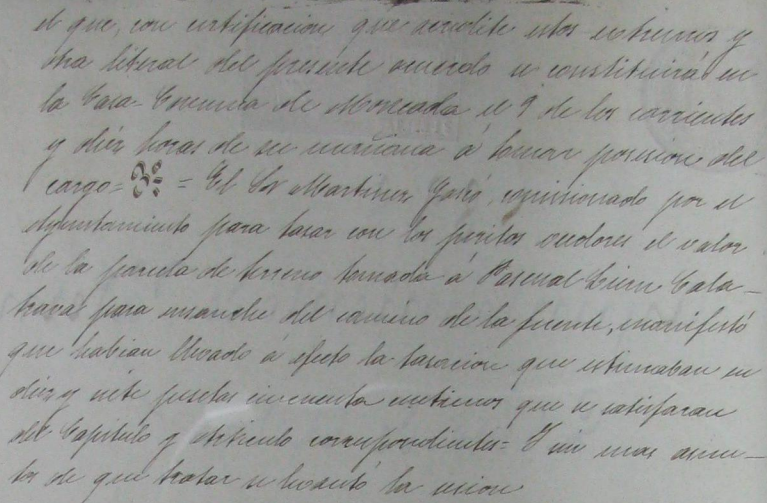 el que, con certificacion que acredite estos extremos y
otra literal del presente acuerdo se constituirá en
la Casa-Comuna de Moncada el 9 de los corrientes
y diéz horas de su mañana á tomar posesion del
cargo= 3º = El Sr Martinez Galió, comisionado por el
Ayuntamiento para tasar con los peritos veedores el valor
de la parcela de terreno tomada á Pascual Lleon Cala-
trava para ensanche del camino de la fuente, manifestó
que habian llevado á efecto la tasacion que estimaban en
diez y siete pesetas cincuenta centimos que se satisfaran
del Capitulo y articulo correspondientes= Y sin mas asun-
tos de que tratar se levantó la sesion